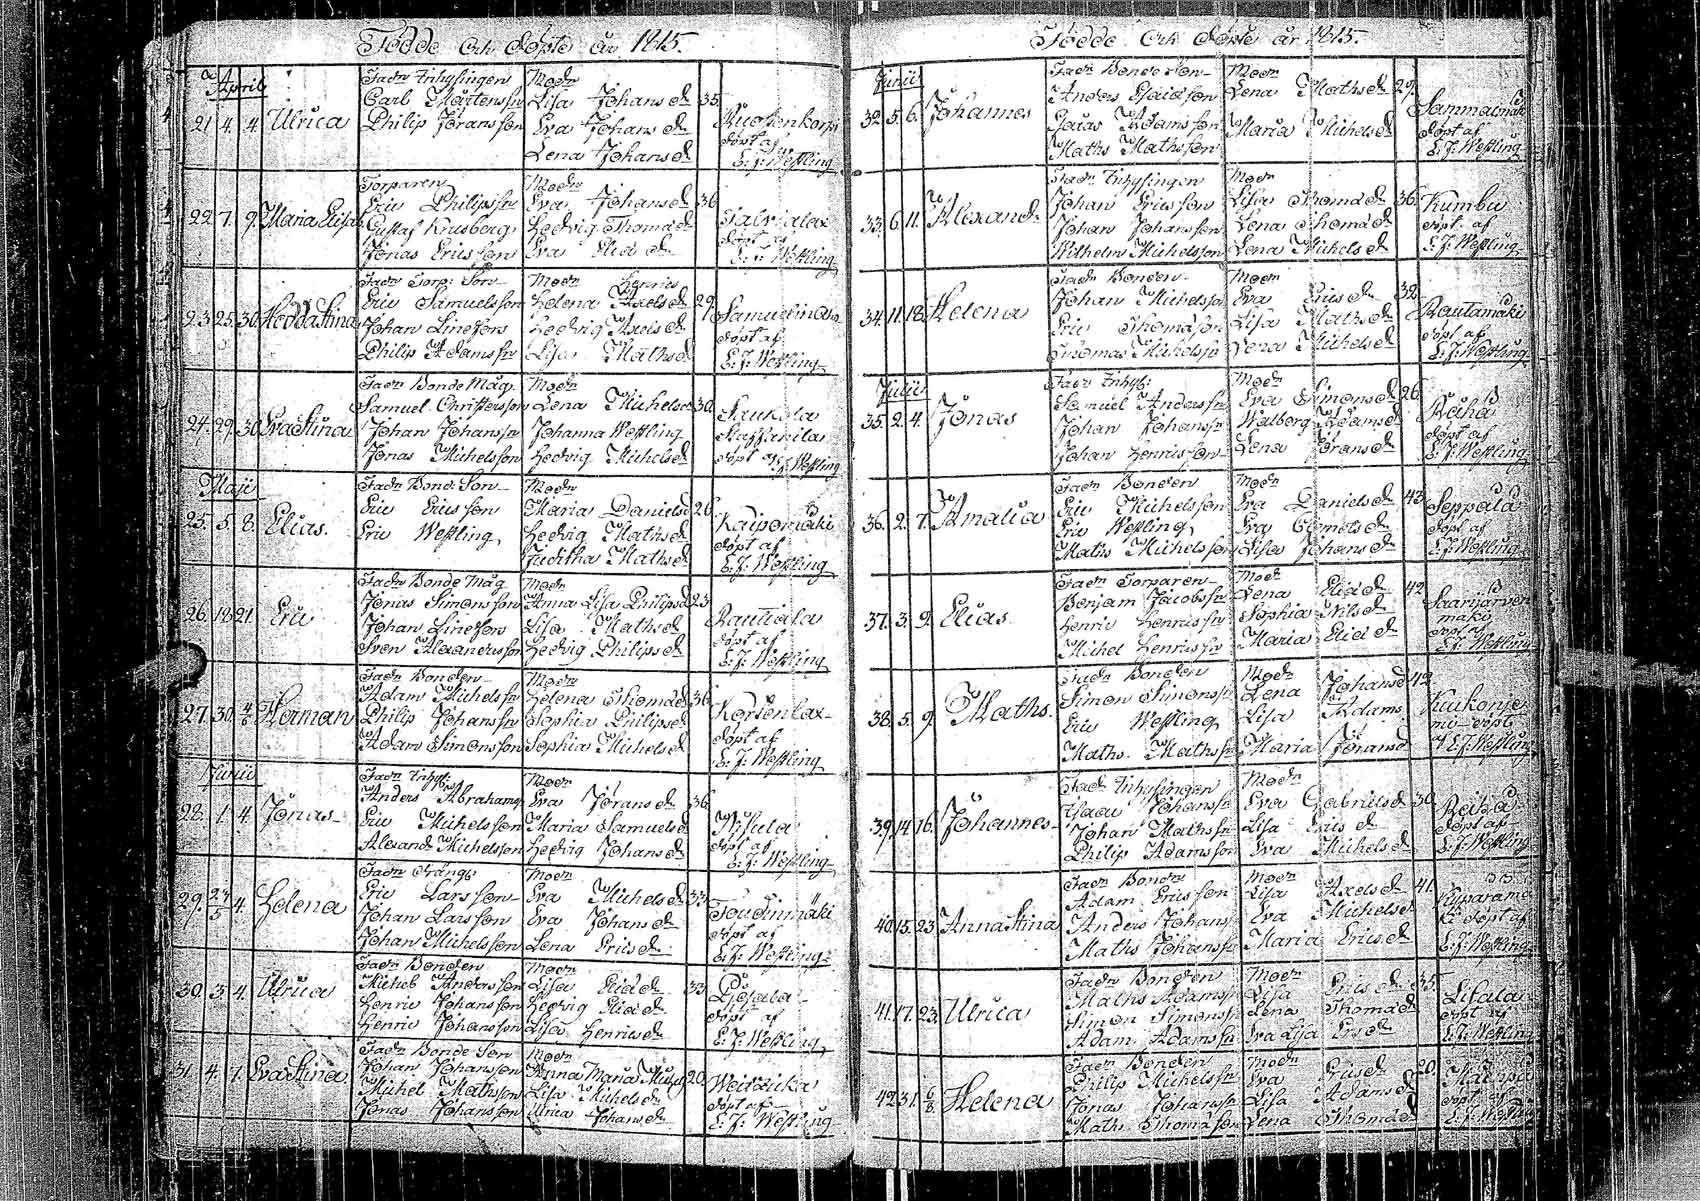 Födde Och döpte år 1815.
April
21. 4. 4. Ulrica
Fadr Inhysingen
Carl Mårtensson
Philip Jöransson
Modr
Lisa Johansdr 35.
Eva Johansdr
Lena Johansdr
döpt af
E. J. Westling
22. 7. 9. Maria Elisab
Torparen
Eric Philipsson
Gustaf Krusberg
Jonas Ericsson
Modr
Eva Johansdr 36
Hedvig Thomædr
Eva Eliædr
döpt af
E. J. Westling
23. 25. 30. Hedda Stina
Fadr Torp: Son
Eric Samuelsson
Johan Lineffons
Philip Adamsson
Modr Henric
Helena Axelsdr 29.
Hedvig Axelsdr
Lisa Mathsdr
döpt af
E. J. Westling
24. 29. 30. Eva Stina
Fadr Bonde Måg.
Samuel Christersson
Johan Johansson
Jonas Michelsson
Modr
Lena Michelsdr 30.
Johanna Westling
Hedvig Michelsdr
Saukola
Staffanila
döpt af E. J. Westling
Maji
25. 5. 8. Elias.
Fadr Bond. Son
Eric Ericsson
Eric Westling
Modr
Maria Danielsd 26.
Hedvig Mathsdr
Juditha Mathsdr
Kaiponmäki
döpt af
E. J. Westling
26. 18. 21. Eric
Fadr Bonde Måg
Jonas Simonsson
Johan Lineffons
Sven Alexandersson
Modr
Anna Lisa Philipsd 23.
Lisa Mathsdr
Hedvig Philipsdr
Rautiala
döpt af
E. J. Westling
27. 30. 4/6 Herman
Fadr Bonden
Adam Michelsson
Philip Johansson
Adam Simonsson
Modr
Helena Thomædr 36.
Sophia Philipsdr
Sophia Michelsdr
Korsenlax
döpt af
E. J. Westling
Junii
28. 1. 4. Jonas
Fadr Inhys:
Anders Abrahams
Eric Michelsson
Alexandr Michelsson
Modr
Eva Jöransdr 36.
Maria Samuelsd
Hedvig Johansdr
döpt af
E. J. Westling
29. 27/5 4. Helena
Fadr Drängs
Eric Larsson
Johan Larsson
Johan Michelsson
Modr
Eva Michelsdr 33.
Eva Johansdr
Lena Ericsdr
döpt af
E. J. Westling
30. 3. 4. Ulrica
Fadr Bonden
Michel Andersson
Henric Johansson
Henric Johansson
Modr
Lisa Eliædr 33.
Hedvig Eliædr
Lisa Henricsdr
döpt af
E. J. Westling
31. 4. 7. Eva Stina
Fadr Bonde Son
Johan Johansson
Michel Mathsson
Jonas Johansson
Modr
Anna Maria Michelsdr 20.
Lisa Michelsdr
Ulrica Johansdr
döpt af
E. J. Westling
Födde Och döpte år 1815.
Junii
32. 5. 6. Johannes
Fadr Bonde Son
Anders Esaiæson
Esaias Adamsson
Maths Mathsson
Modr
Lena Mathsdr 29.
Maria Michelsdr
döpt af
E. J. Westling
33. 6. 11. Alexandr
Fadr Inhysingen
Johan Ericsson
Johan Johansson
Wilhelm Michelsson
Modr
Lisa Thomædr 36.
Lena Thomædr
Lena Michelsdr
Kumbu
döpt. af
E. J. Westling
34. 11. 18. Helena
Fadr Bonden
Johan Michelsson
Eric Thomæson
Thomas Michelsson
Modr
Eva Ericsdr 32.
Lisa Mathsdr
Lena Michelsdr
Rautamäki
döpt af
E. J. Westling
Julii
35. 2. 4. Jonas
Fadr Inhys:
Samuel Andersson
Johan Johansson
Johan Henricsson
Modr
Eva Simonsdr 26.
Walborg Adamsdr
Lena Jöransdr
döpt af
E. J. Westling
36. 2. 7. Amalia
Fadr Bonden
Eric Michelsson
Eric Westling
Maths Michelsson
Modr
Eva Danielsdr 43.
Eva Clemetsdr
Lisa Johansdr
Seppälä
döpt af
E. J. Westling
37. 3. 9. Elias.
Fadr Torparen
Benjam Jacobsson
Henric Henricsson
Michel Henricsson
Modr
Lena Eliædr 42.
Sophia Nilsdr
Maria Eliædr
Saarijärven
mäki
döpt af
E. J. Westling
38. 5. 9. Maths.
Fadr Bonden
Simon Simonsson
Eric Westling
Maths. Mathsson
Modr
Lena Johansd 42.
Lisa Adams
Maria Jöransd
döpt
af E. J. Westling
39. 14. 16. Johannes
Fadr Inhysingen
Isaac Johansson
Johan Mathsson
Philip Adamsson
Modr
Eva Gabrielsd 30.
Lisa Ericsdr
Eva Michelsdr
döpt af
E. J. Westling
40. 15. 23. Anna Stina
Fadr Bonden
Adam Ericsson
Anders Johansson
Maths Johansson
Modr
Lisa Axelsdr 41.
Eva Michelsdr
Maria Ericsdr
döpt af
E. J. Westling
41. 17. 23. Ulrica
Fadr Bonden
Maths Adamsson
Simon Simonsson
Adam Adamsson
Modr
Lisa Ericsdr 35.
Lena Thomædr
Eva Lisa Ericsdr
Lisala
döpt af
E. J. Westling
42. 31. 6/8 Helena
Fadr Bonden
Philip Michelsson
Jonas Johansson
Maths Thomæson
Modr
Eva Ericsdr
Lisa Adamsdr
Lena Thomædr
döpt af
E. J. Westling